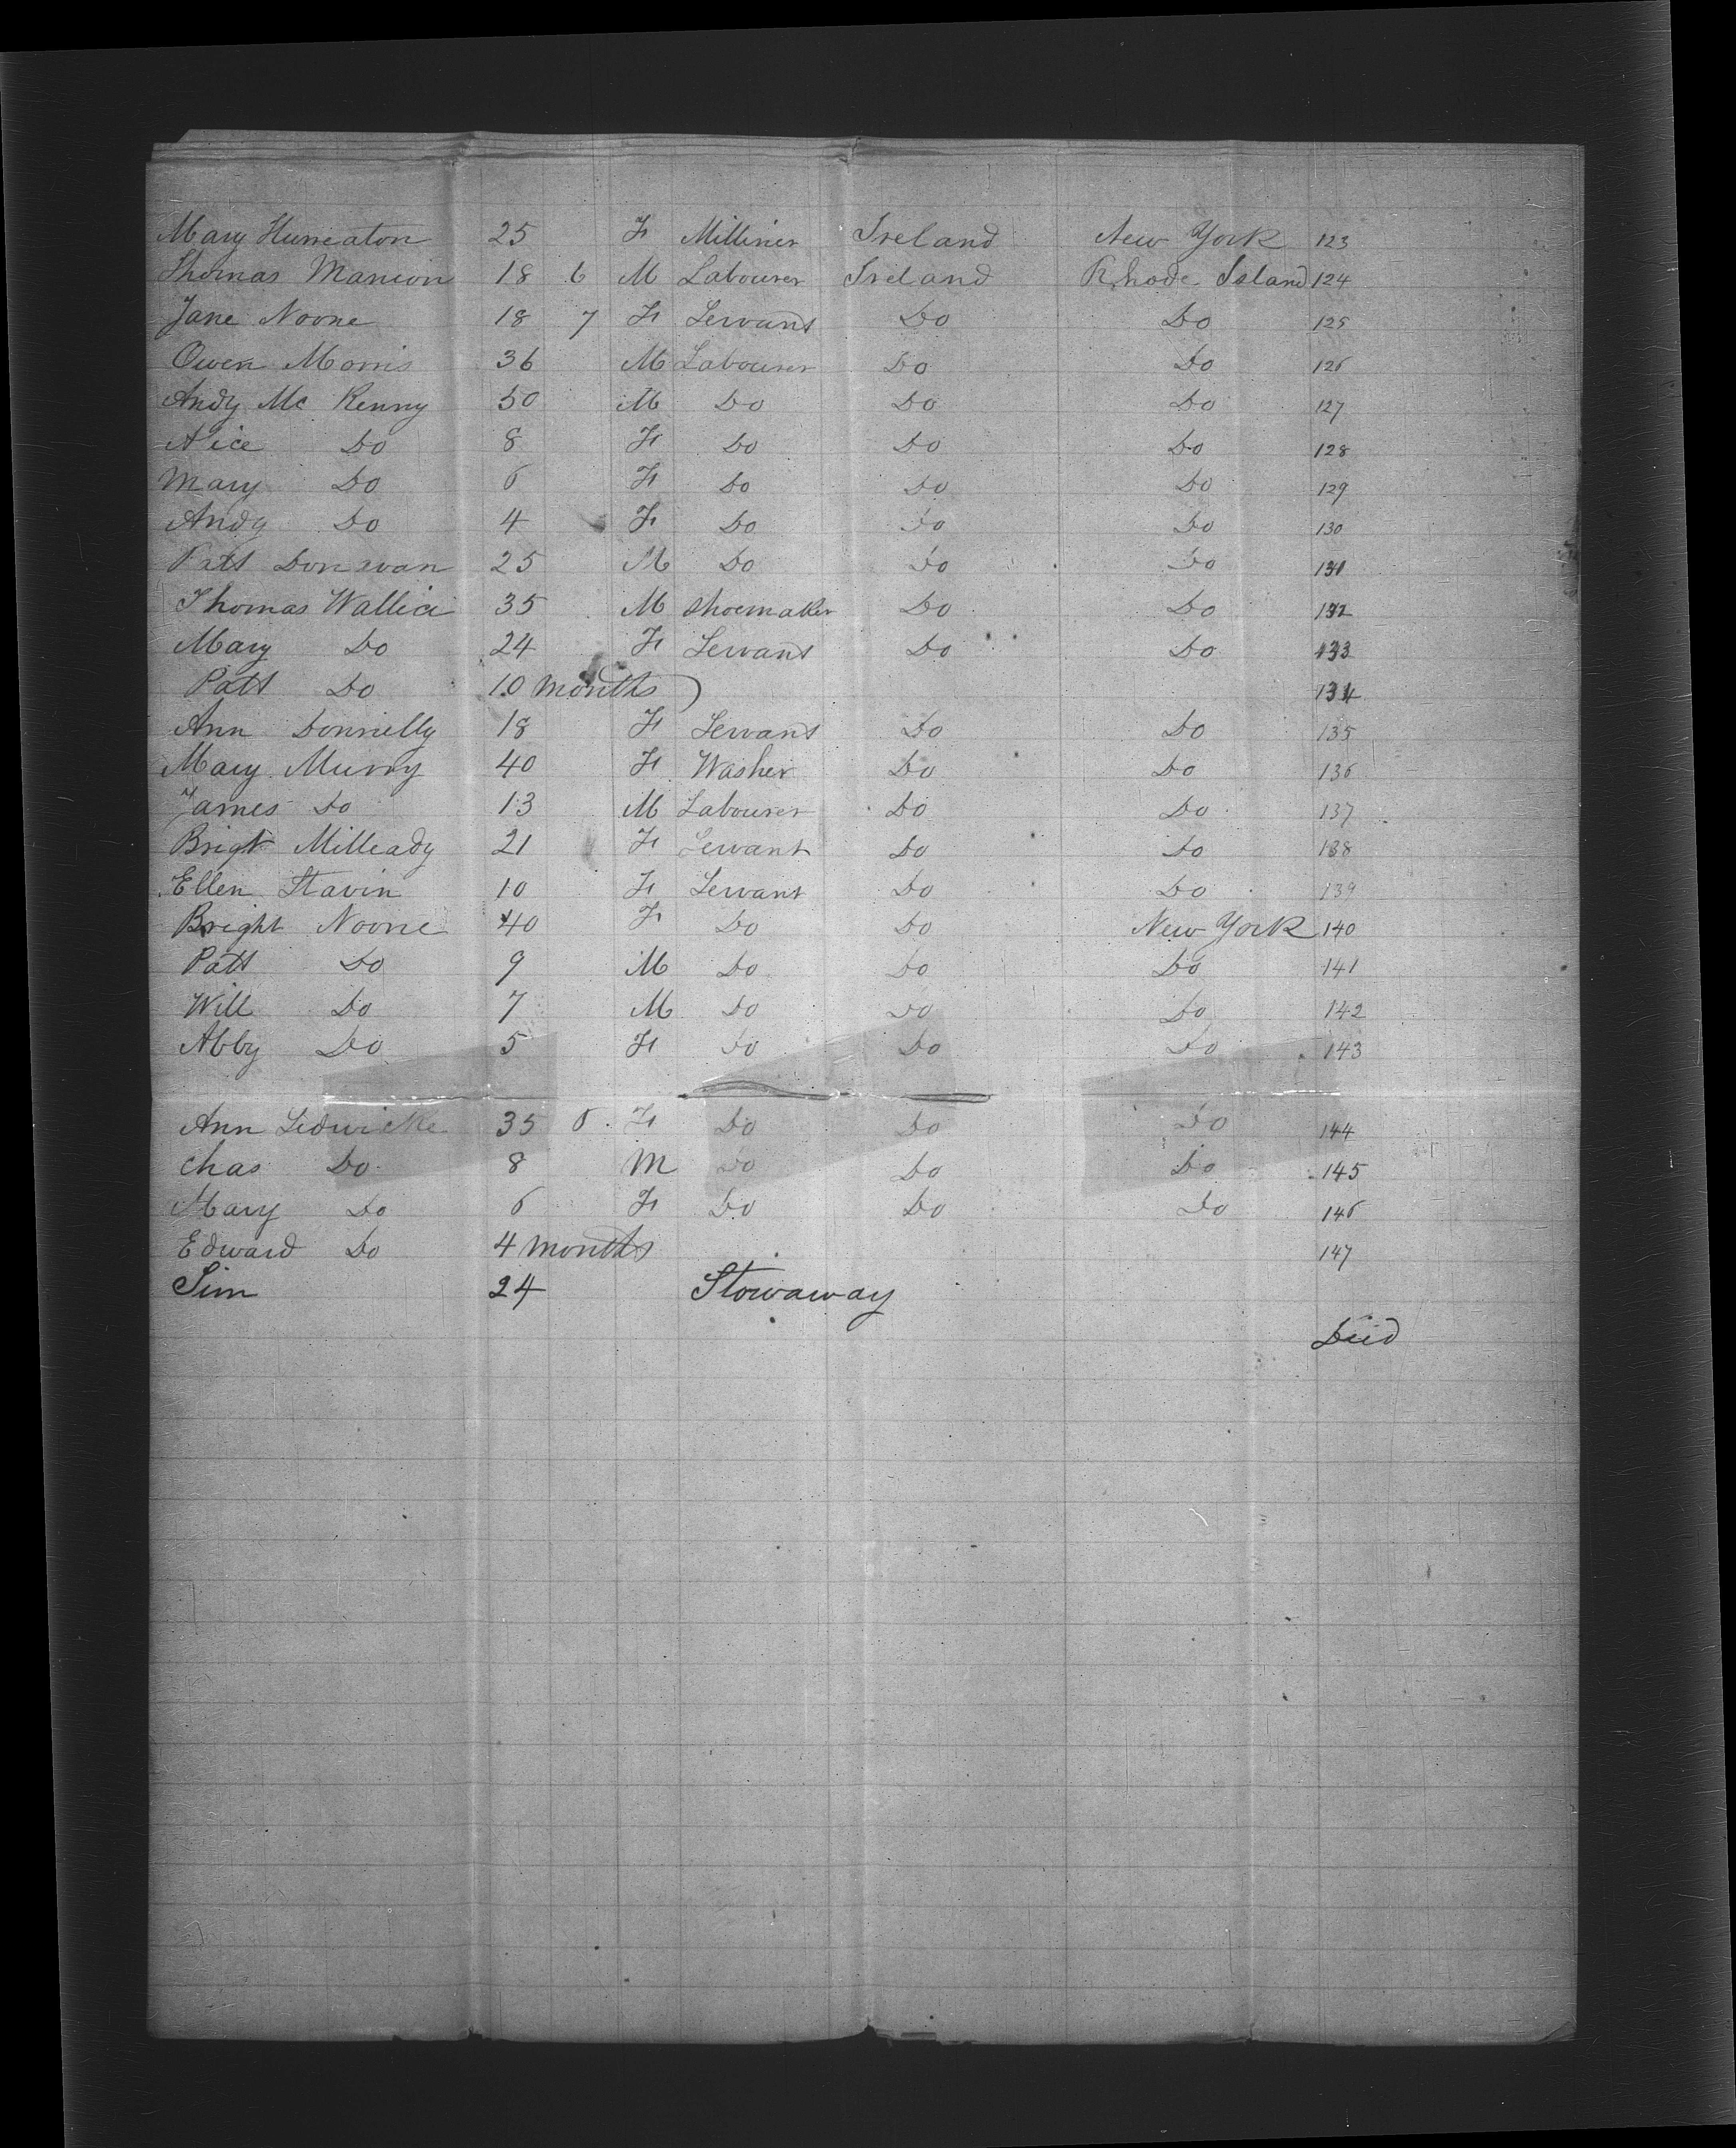 Mary Hurreaton 25 F Milliner Ireland New York 123
Thomas Manion 18 6 M Labourer Ireland Rhode Island 124
Jane Noone 18 7 F Servant Do Do 125
Owen Morris 36 M Labourer Do Do 126
Andy Mc Kenny 50 M Do Do Do 127
Alice Do 8 F Do Do Do 128
Mary Do 6 F Do Do Do 129
Andy Do 4 F Do Do Do 130
Patt Donavan 25 M Do Do Do 131
Thomas Wallice 35 M Shoemaker Do Do 132
Mary Do 24 F Servant Do Do 133
Patt Do 10 Months ) 134
Ann Donnelly 18 F Servant Do Do 135
Mary Murry 40 F Washer Do Do 136
James Do 13 M Labourer Do Do 137
Brigt Milleady 21 F Servant Do Do 138
Ellen Slavin 10 F Servant Do Do 139
Bright Noone 40 F Do Do New York 140
Patt Do 9 M Do Do Do 141
Will Do 7 M Do Do Do 142
Abby Do 5 F Do Do Do 143
Ann Ledwicke 35 F Do Do Do 144
Chas Do 8 M Do Do Do 145
Mary Do 6 F Do Do Do 146
Edward Do 4 Months 147
Sim 24 Stowaway
Deid